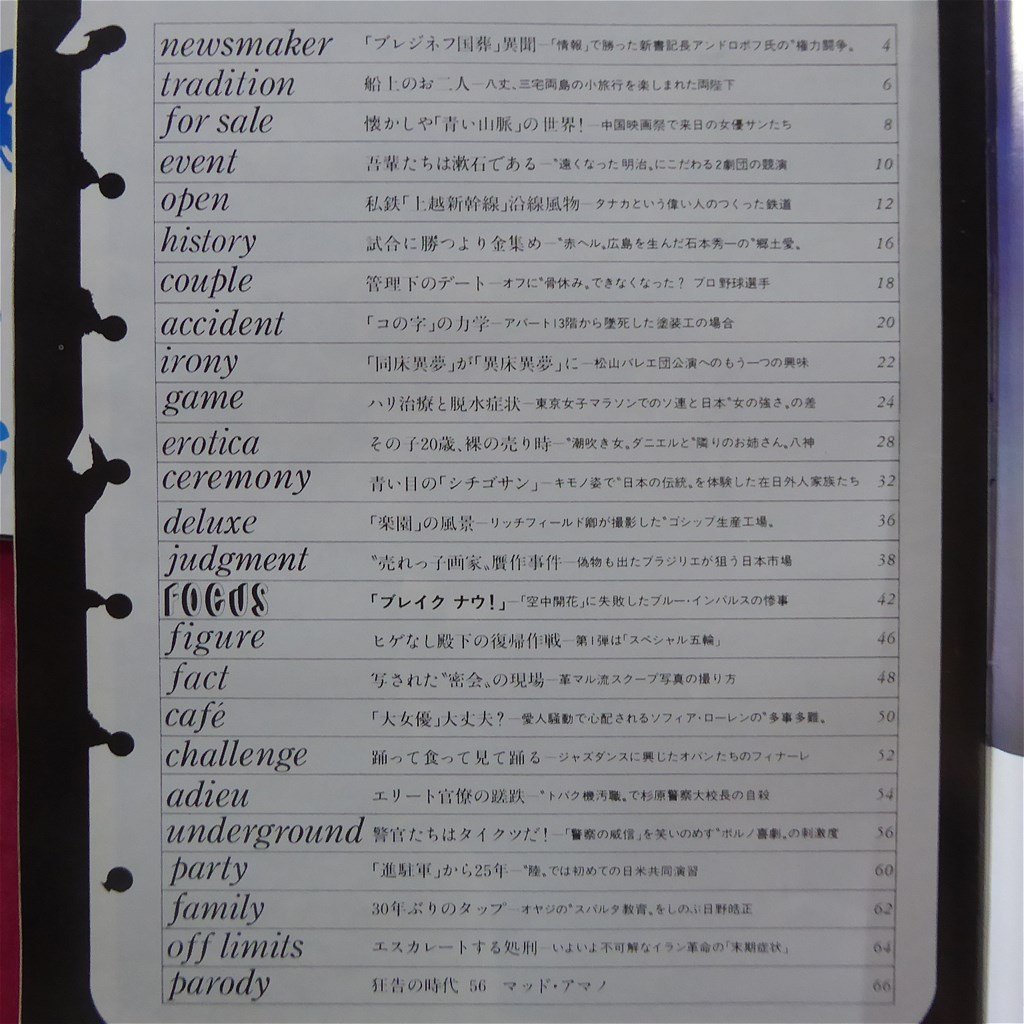 newsmaker 「ブレジネフ国葬」異聞—「情報」で勝った新書記長アンドロポフ氏の〝権力闘争〟 4
tradition 船上のお二人—八丈、三宅両島の小旅行を楽しまれた両陛下 6
for sale 懐かしや「青い山脈」の世界!—中国映画祭で来日の女優サンたち 8
event 吾輩たちは漱石である—〝遠くなった明治〟にこだわる2劇団の競演 10
open 私鉄「上越新幹線」沿線風物—タナカという偉い人のつくった鉄道 12
history 試合に勝つより金集め—〝赤ヘル〟広島を生んだ石本秀一の〝郷土愛〟 16
couple 管理下のデート—オフに〝骨休み〟できなくなった? プロ野球選手 18
accident 「コの字」の力学—アパート13階から墜死した塗装工の場合 20
irony 「同床異夢」が「異床異夢」に—松山バレエ団公演へのもう一つの興味 22
game ハリ治療と脱水症状—東京女子マラソンでのソ連と日本〝女の強さ〟の差 24
erotica その子20歳、裸の売り時—〝潮吹き女〟ダニエルと〝隣りのお姉さん〟八神 28
ceremony 青い目の「シチゴサン」—キモノ姿で〝日本の伝統〟を体験した在日外人家族たち 32
deluxe 「楽園」の風景—リッチフィールド卿が撮影した〝ゴシップ生産工場〟 36
judgment 〝売れっ子画家〟贋作事件—偽物も出たブラジリエが狙う日本市場 38
FOCUS 「ブレイク ナウ!」—「空中開花」に失敗したブルー・インパルスの惨事 42
figure ヒゲなし殿下の復帰作戦—第1弾は「スペシャル五輪」 46
fact 写された〝密会〟の現場—革マル流スクープ写真の撮り方 48
café 「大女優」大丈夫?—愛人騒動で心配されるソフィア・ローレンの〝多事多難〟 50
challenge 踊って食って見て踊る—ジャズダンスに興じたオバンたちのフィナーレ 52
adieu エリート官僚の蹉跌—〝トバク機汚職〟で杉原警察大校長の自殺 54
underground 警官たちはタイクツだ!—「警察の威信」を笑いのめす〝ポルノ喜劇〟の刺激度 56
party 「進駐軍」から25年—〝陸〟では初めての日米共同演習 60
family 30年ぶりのタップ—オヤジの〝スパルタ教育〟をしのぶ日野皓正 62
off limits エスカレートする処刑—いよいよ不可解なイラン革命の「末期症状」 64
parody 狂告の時代 56 マッド・アマノ 66